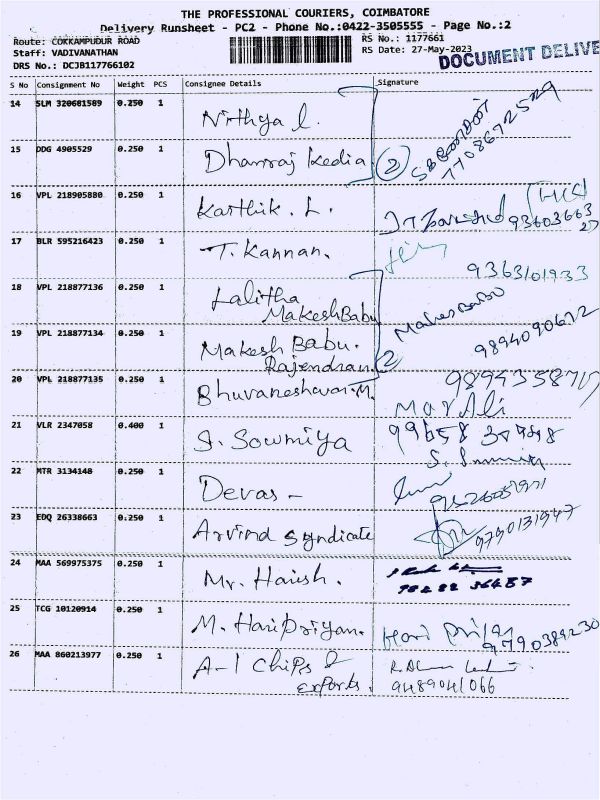 THE PROFESSIONAL COURIERS, COIMBATORE
Delivery Runsheet - PC2 - Phone No.:0422-3505555 - Page No.:2
Route: COKKAMPUDUR ROAD
RS No.: 1177661
Staff: VADIVANATHAN
RS Date: 27-May-2023
DOCUMENT DELIVE
DRS No.: DCJB117766102
S No Consignment No Weight PCS Consignee Details Signature
14 SLM 320681589 0.250 1 Nithya L.
15 DDG 4905529 0.250 1 Dhanraj Kedia 2
7708672529
16 VPL 218905880 0.250 1 Karthik. L.
17 BLR 595216423 0.250 1 T. Kannan.
9363101933
18 VPL 218877136 0.250 1 Lalitha
MakeshBabu
19 VPL 218877134 0.250 1 Makesh Babu.
Rajendran 2
9894090672
20 VPL 218877135 0.250 1 Bhuvaneshwari.M.
21 VLR 2347058 0.400 1 S. Sowmiya
22 MTR 3134148 0.250 1 Devas -
23 EDQ 26338663 0.250 1 Arvind Syndicate
9790131947
24 MAA 569975375 0.250 1 Mr. Harish.
25 TCG 10120914 0.250 1 M. Haripriyan. Hari Priyan
9790389230
26 MAA 860213977 0.250 1 A-1 Chips &
Exports.
9489041066